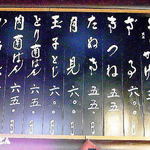 ざる 六〇〇
きつね 五五〇
たぬき 五五〇
月見 六〇〇
玉子とじ 六五〇
とり南ばん 六五〇
肉南ばん 六五〇